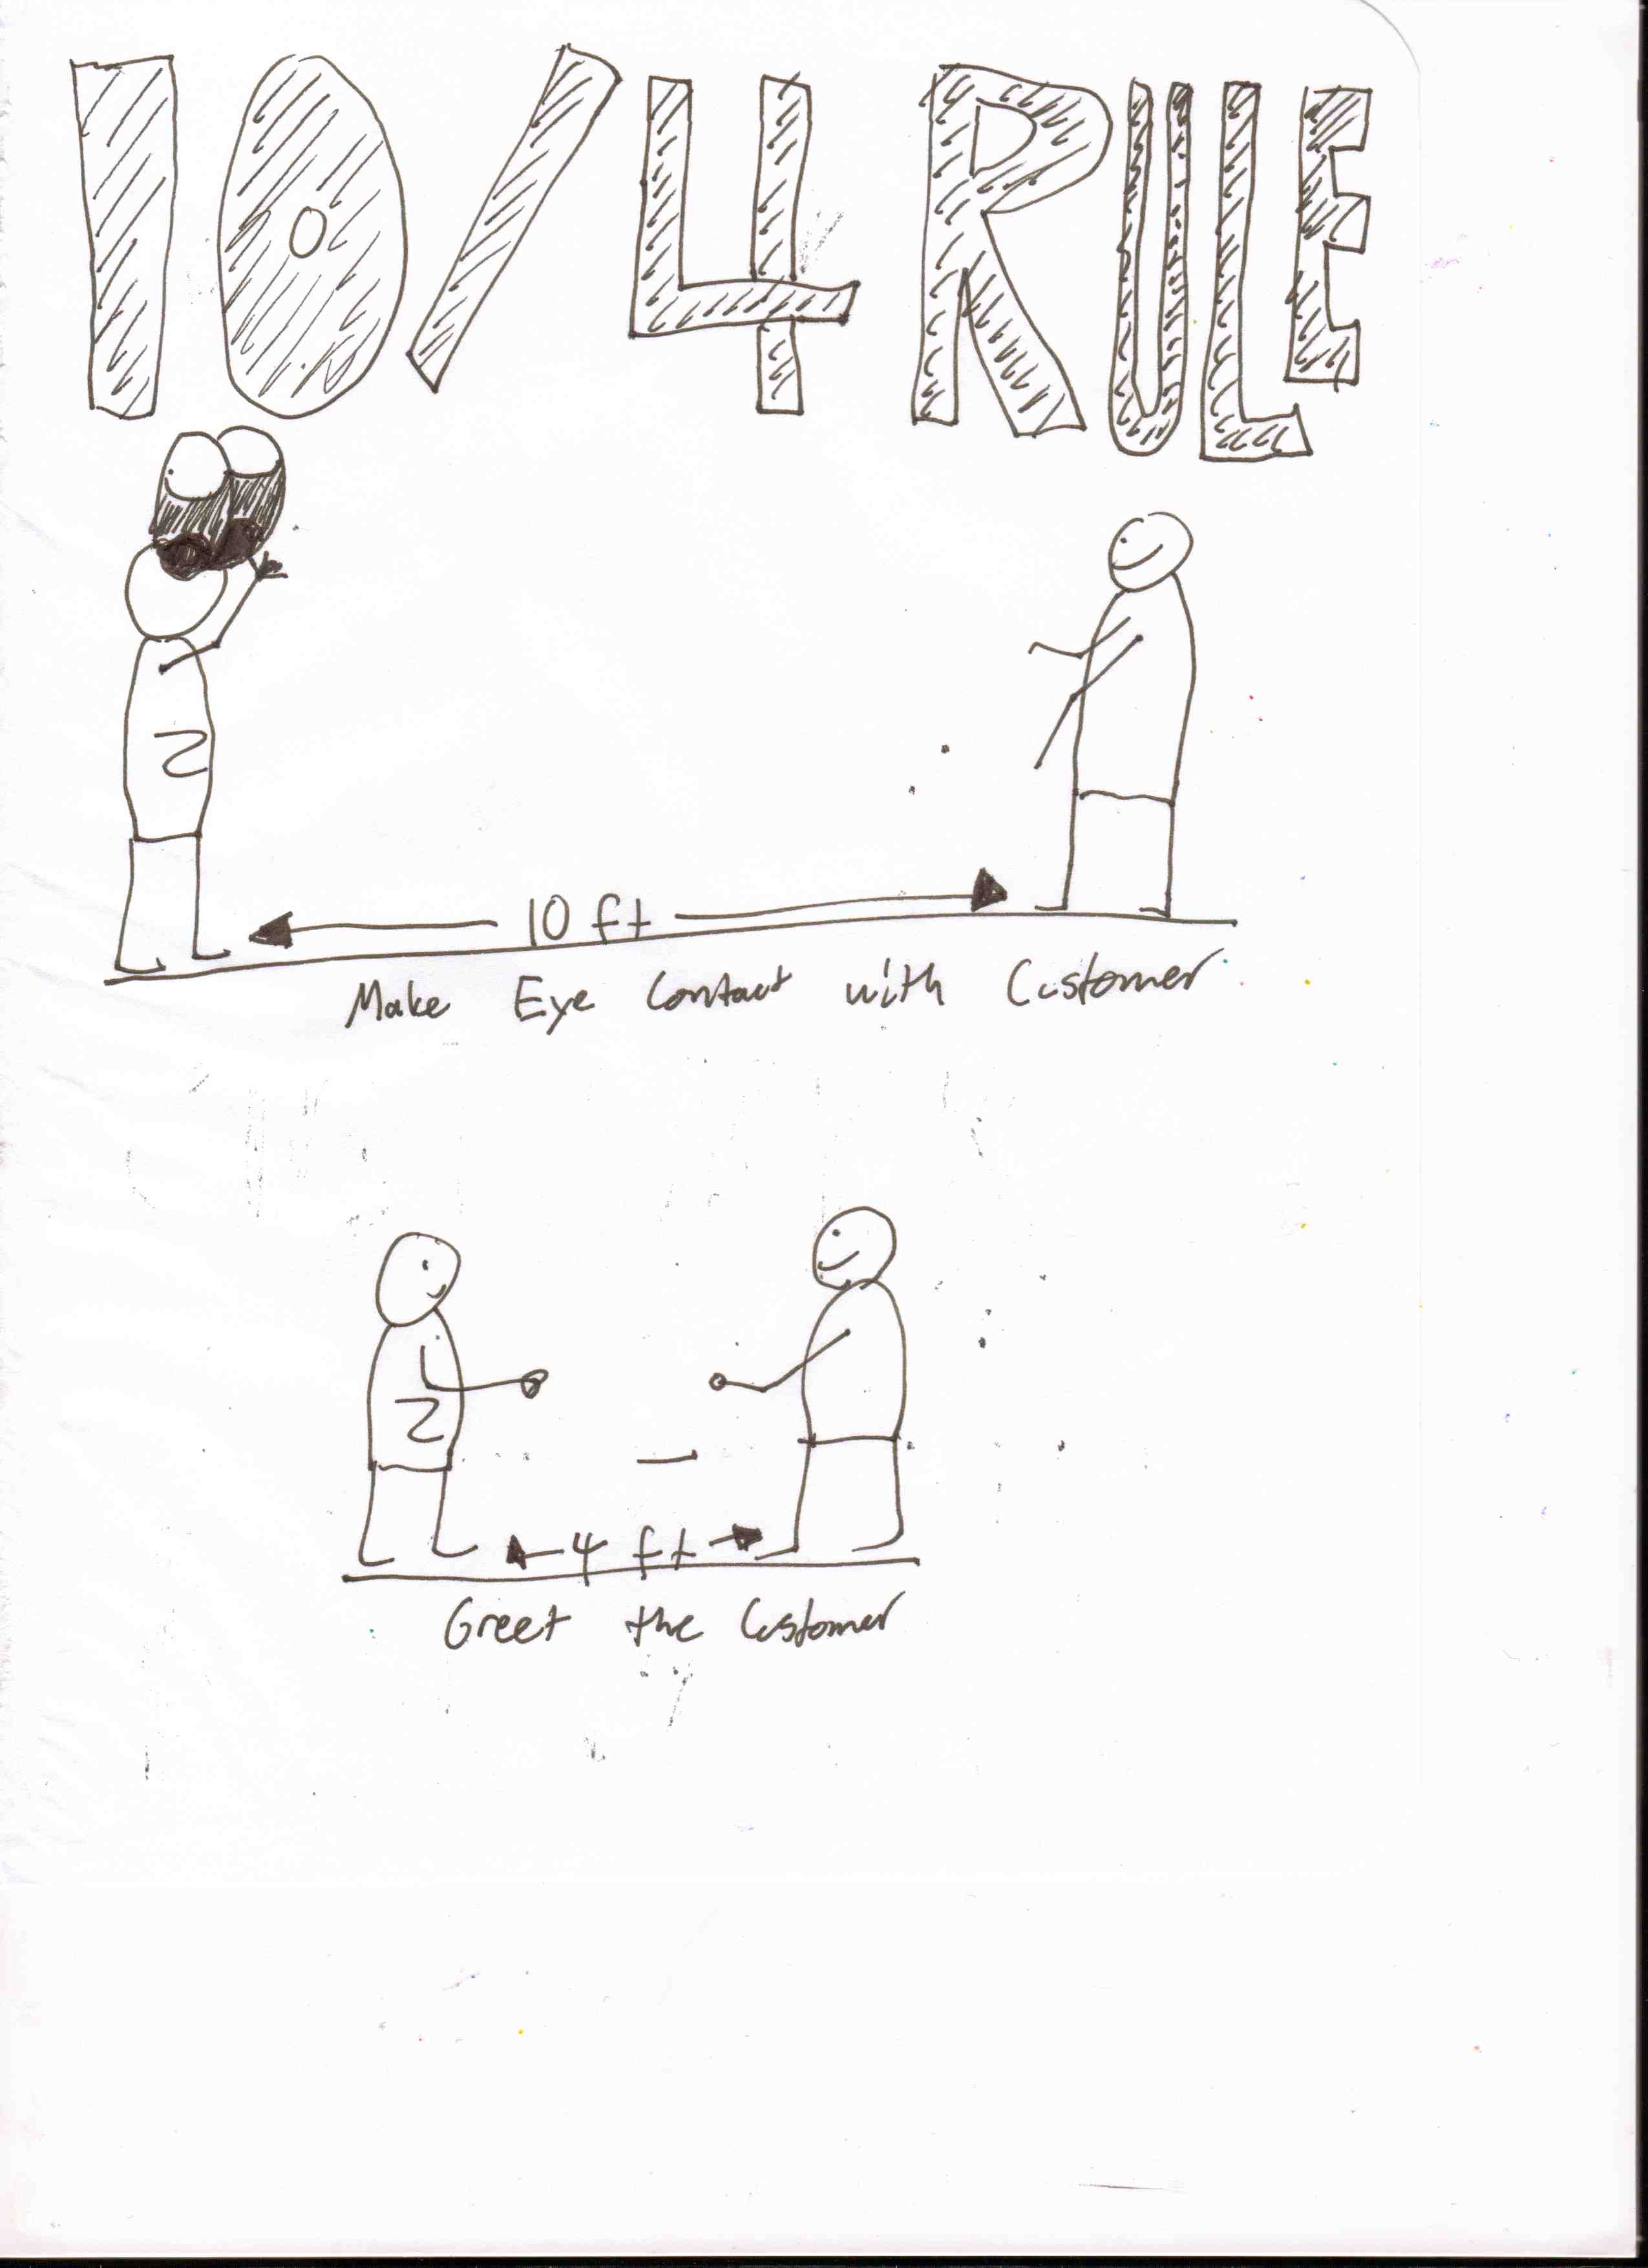 10/4 RULE
10 ft
Make Eye Contact with Customer
4 ft
Greet the Customer